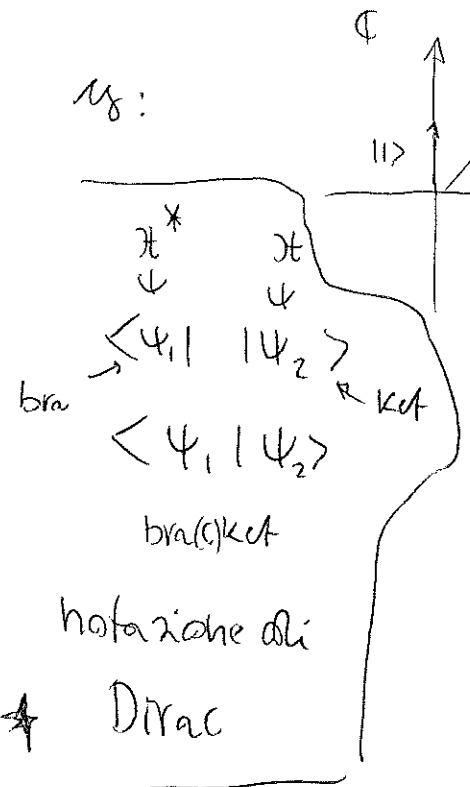 ℂ
|1>
ℋ* ℋ
ψ ψ
<ψ₁| |ψ₂>
bra ket
<ψ₁|ψ₂>
bra(c)ket
notazione di
★ Dirac